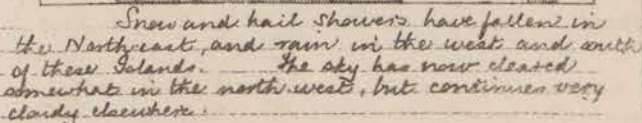 Snow and hail showers have fallen in
the North east, and rain in the west and south
of these Islands. The sky has now cleared
somewhat in the north west, but continues very
cloudy elsewhere.